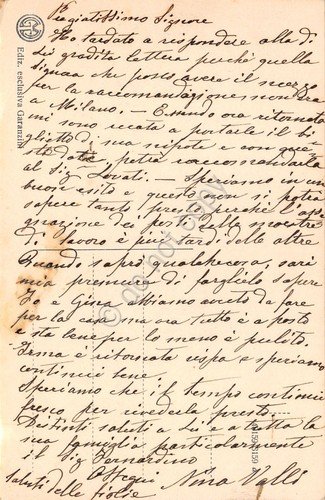 Pregiatissimo Signore
Ho tardato a rispondere alla di
Lei gradita lettera perché quella
signora che posso avere il mezzo
per la raccomandazione non era
a Milano. — Essendo ora ritornata
mi sono recata a portarle il bi-
glietto di sua nipote e con
sarà raccomandata
al Sig Lovati. — Speriamo in un
buon esito e questo non si potrà
sapere tanto presto perché l'asse-
gnazione dei posti delle maestre
di lavoro è più tardi delle altre
Quando saprò qualche cosa, sarà
mia premura di farglielo sapere
Io e Gina abbiamo avuto da fare
per la casa ma ora tutto è a posto
e sta bene per lo meno è pulito.
Irma è ritornata vispa e speriamo
continui bene.
Speriamo che il tempo continui
fresco per rivederla presto.
Distinti saluti a Lei e a tutta la
sua famiglia particolarmente
il Sig Bernardino
Ossequi
saluti delle figlie Nina Valli
Ediz. esclusiva Garanzini